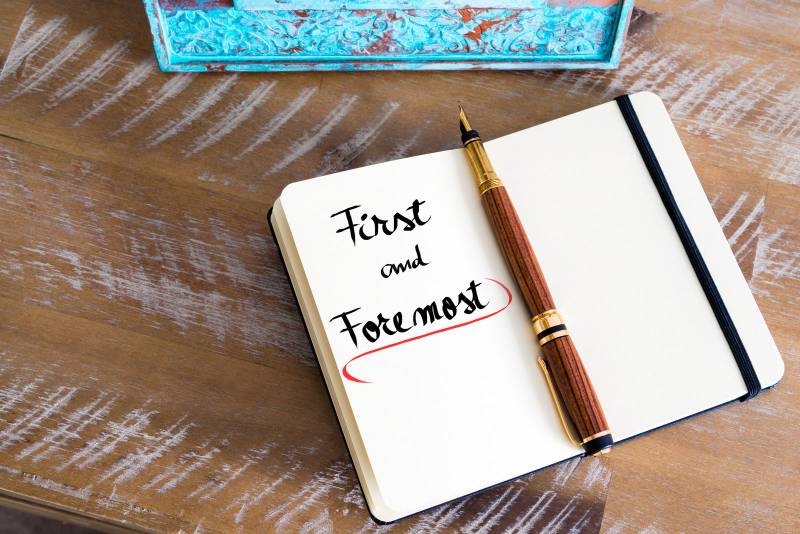 First
and
Foremost